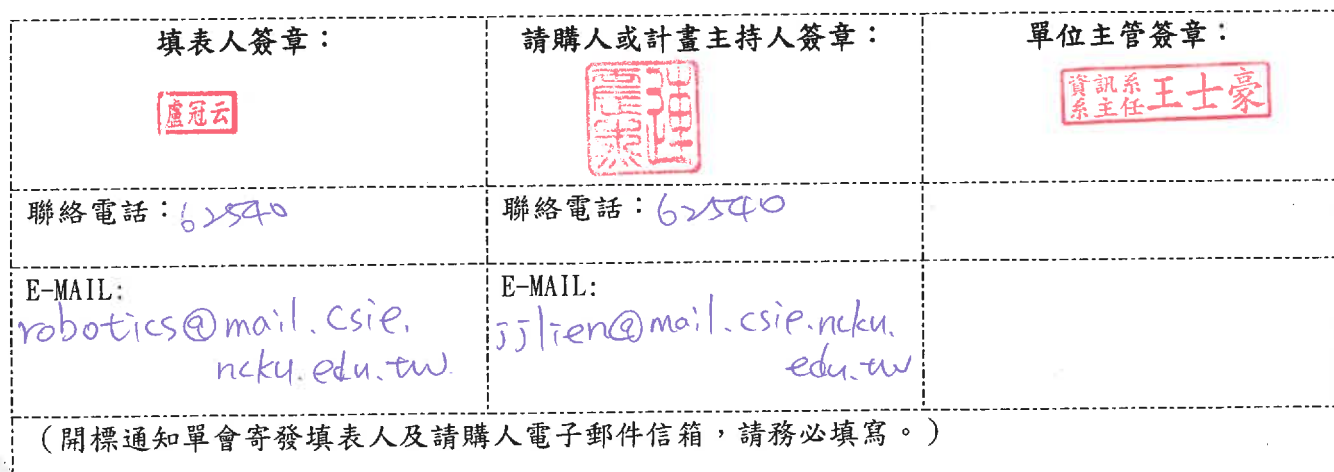 填表人簽章：
請購人或計畫主持人簽章：
單位主管簽章：
盧冠云
資訊系
系主任
王士豪
聯絡電話：62540
聯絡電話：62540
E-MAIL:
robotics@mail.csie.
ncku.edu.tw
E-MAIL:
jjlien@mail.csie.ncku.
edu.tw
（開標通知單會寄發填表人及請購人電子郵件信箱，請務必填寫。）